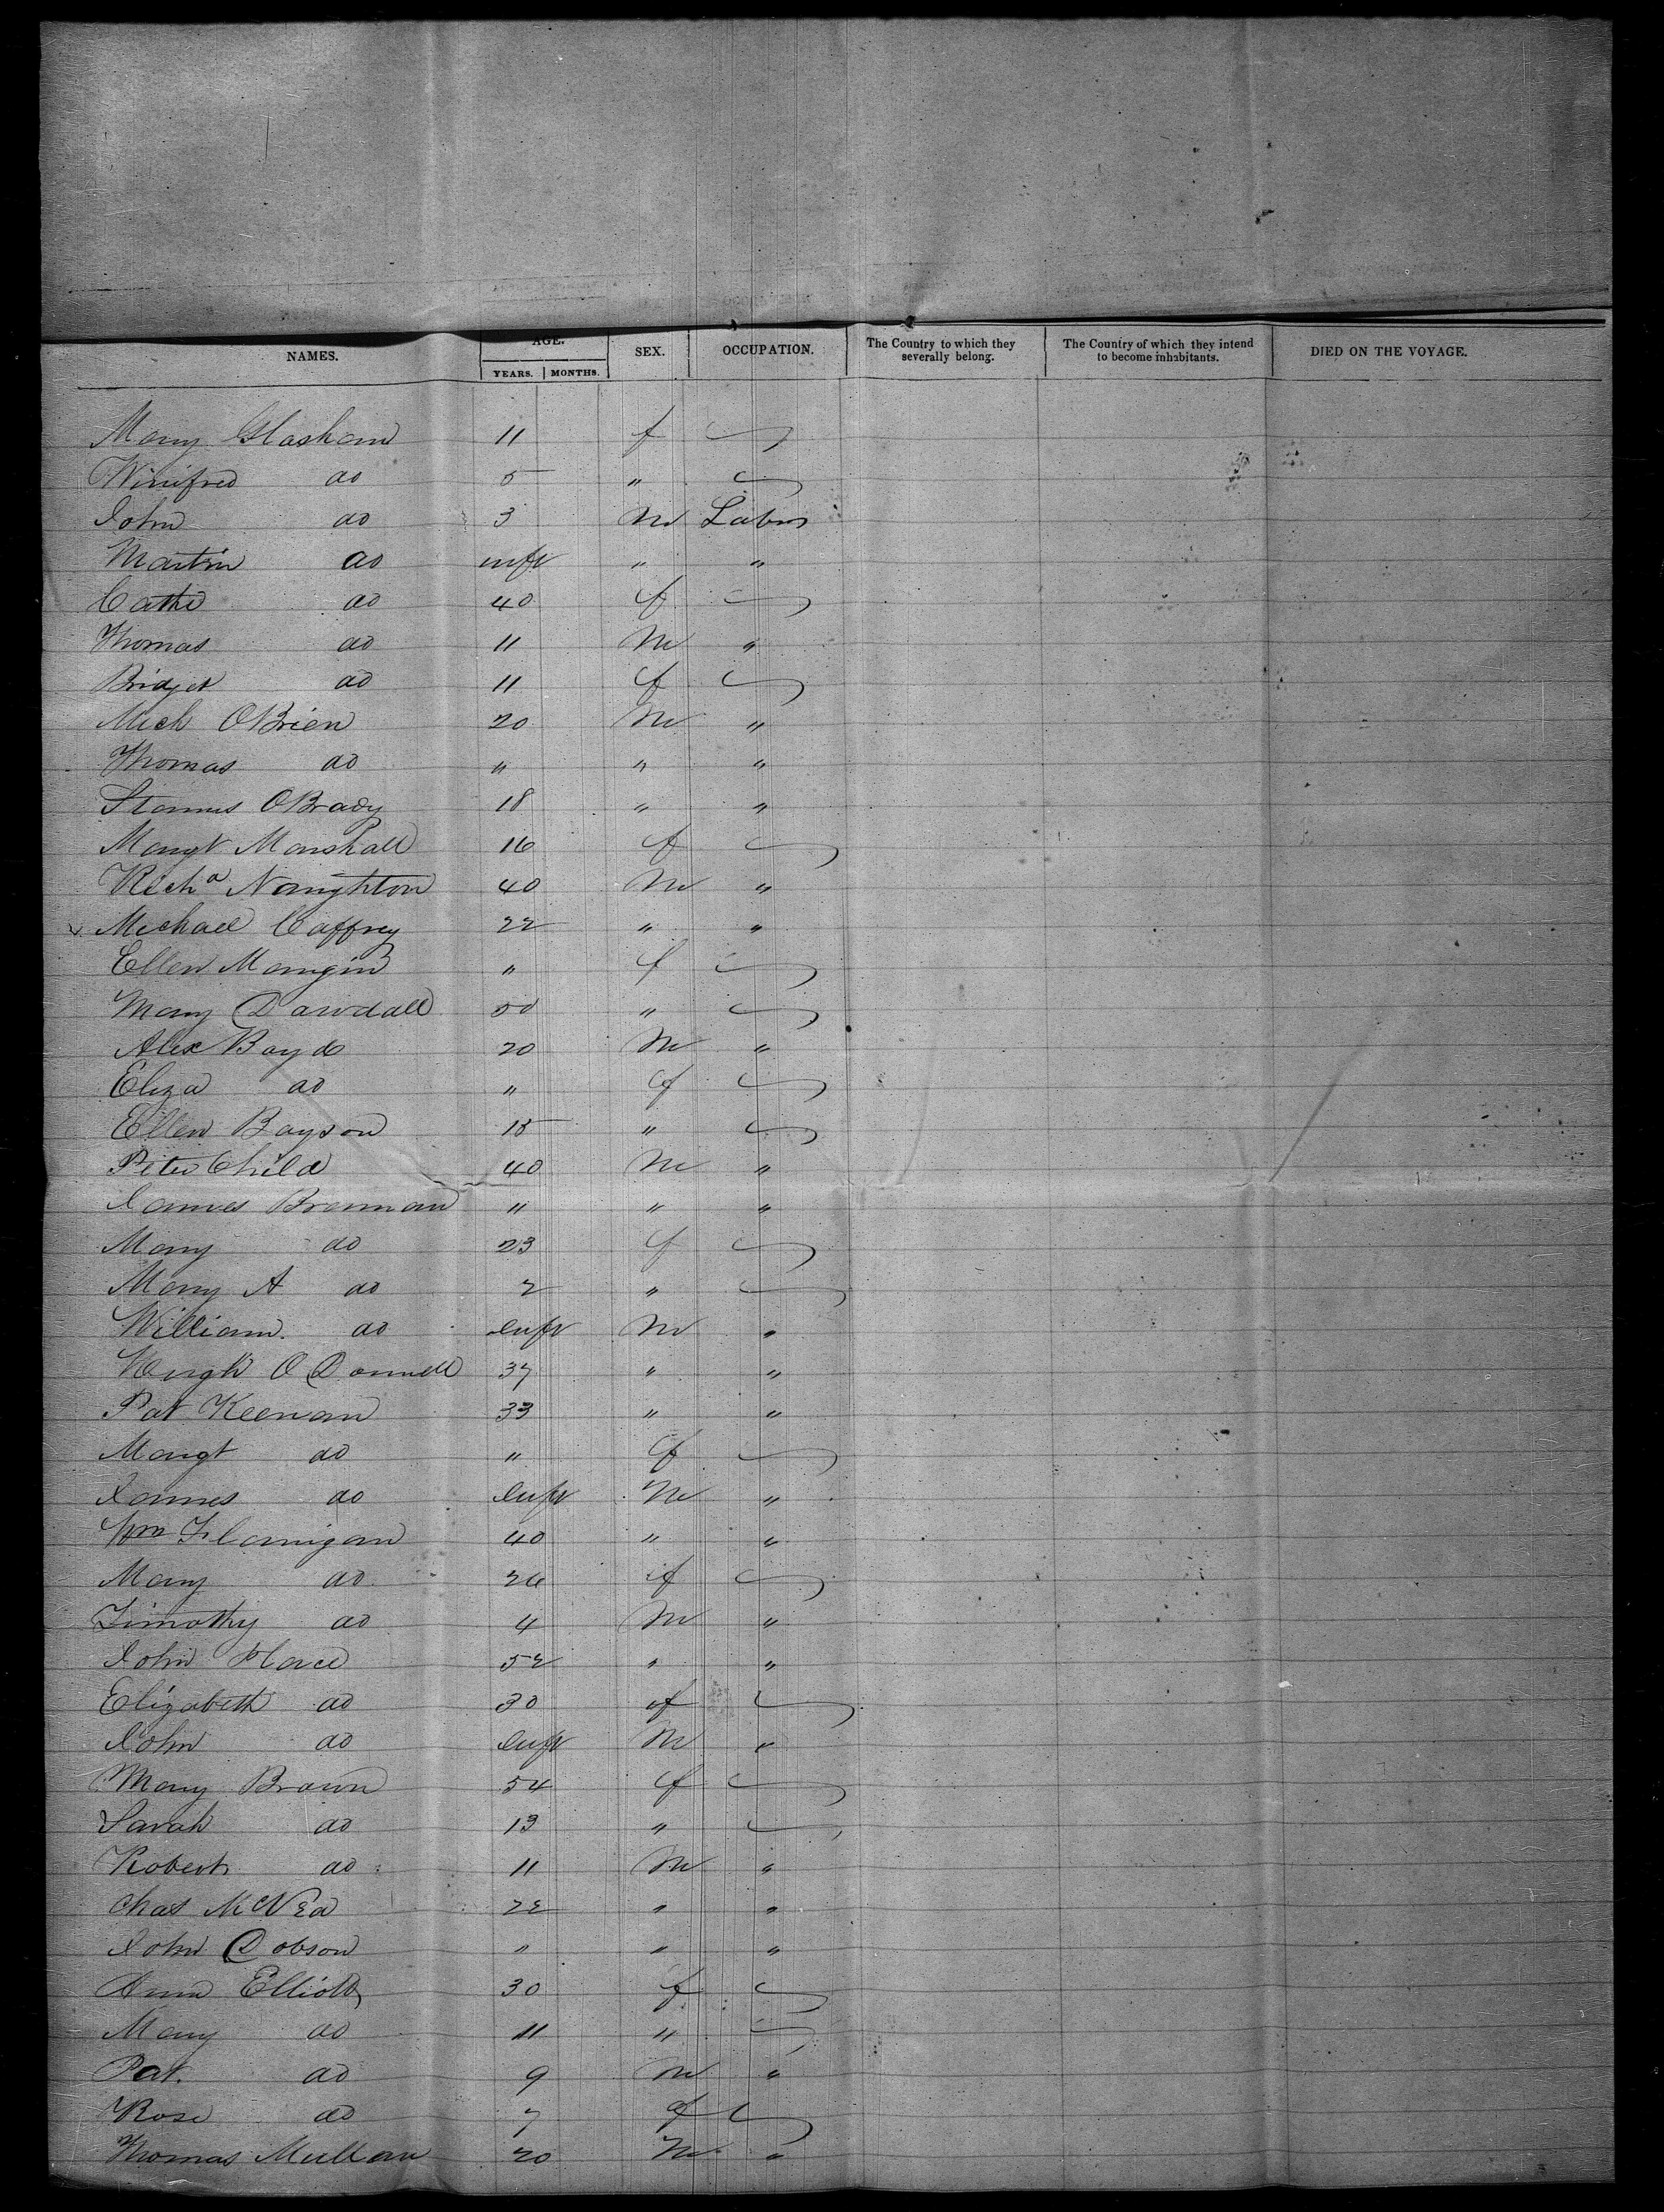 NAMES. AGE. YEARS. MONTHS. SEX. OCCUPATION. The Country to which they severally belong. The Country of which they intend to become inhabitants. DIED ON THE VOYAGE.
Mary Glashan 11 f
Winifred do 5 "
John do 3 M Labor
Martin do inft " "
Cathe do 40 f
Thomas do 11 M "
Bridget do 11 f
Mich OBrien 20 M "
Thomas do " " "
OBrady 18 " "
Margt Marshall 16 f
Richd Naughton 40 M "
Michael Caffrey 22 " "
Ellen Mangin " f
Mary Dawdall 50 "
Alex Boyd 20 M "
Eliza do " f
Ellen Bayson 15 "
Peter Child 40 M "
James Brannan " " "
Mary do 23 f
Mary A do 2 "
William do Inft M "
Hugh O Donnell 37 " "
Pat Keenan 33 " "
Margt do " f
James do Inft M "
Wm Flanigan 40 " "
Mary do 26 f
Timothy do 4 M "
John Place 52 " "
Elizabeth do 30 f
John do Inft M "
Mary Brown 54 f
Sarah do 13 "
Robert do 11 M "
Chas McVea 22 " "
John Dobson " " "
Ann Elliott 30 f
Mary do 11 "
Pat. do 9 M "
Rose do 7 f
Thomas Mullan 20 M "